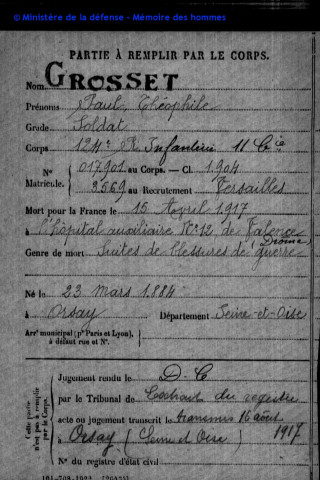 © Ministère de la défense - Mémoire des hommes
PARTIE À REMPLIR PAR LE CORPS.
Nom GROSSET
Prénoms Paul, Théophile
Grade Soldat
Corps 124e R. Infanterie 11 Cie
N° 017901 au Corps. — Cl. 1904
Matricule. 3569 au Recrutement Versailles
Mort pour la France le 15 Avril 1917
à l'hôpital auxiliaire N° 12 de Valence
(Drôme)
Genre de mort Suites de blessures de guerre
Né le 23 mars 1884
à Orsay Département Seine-et-Oise
Arrt municipal (pr Paris et Lyon),
à défaut rue et N°.
Cette partie
n'est pas à remplir
par le Corps.
Jugement rendu le D-C
par le Tribunal de Extrait du registre
acte ou jugement transcrit le transmis 16 août
1917
à Orsay (Seine et Oise)
N° du registre d'état civil